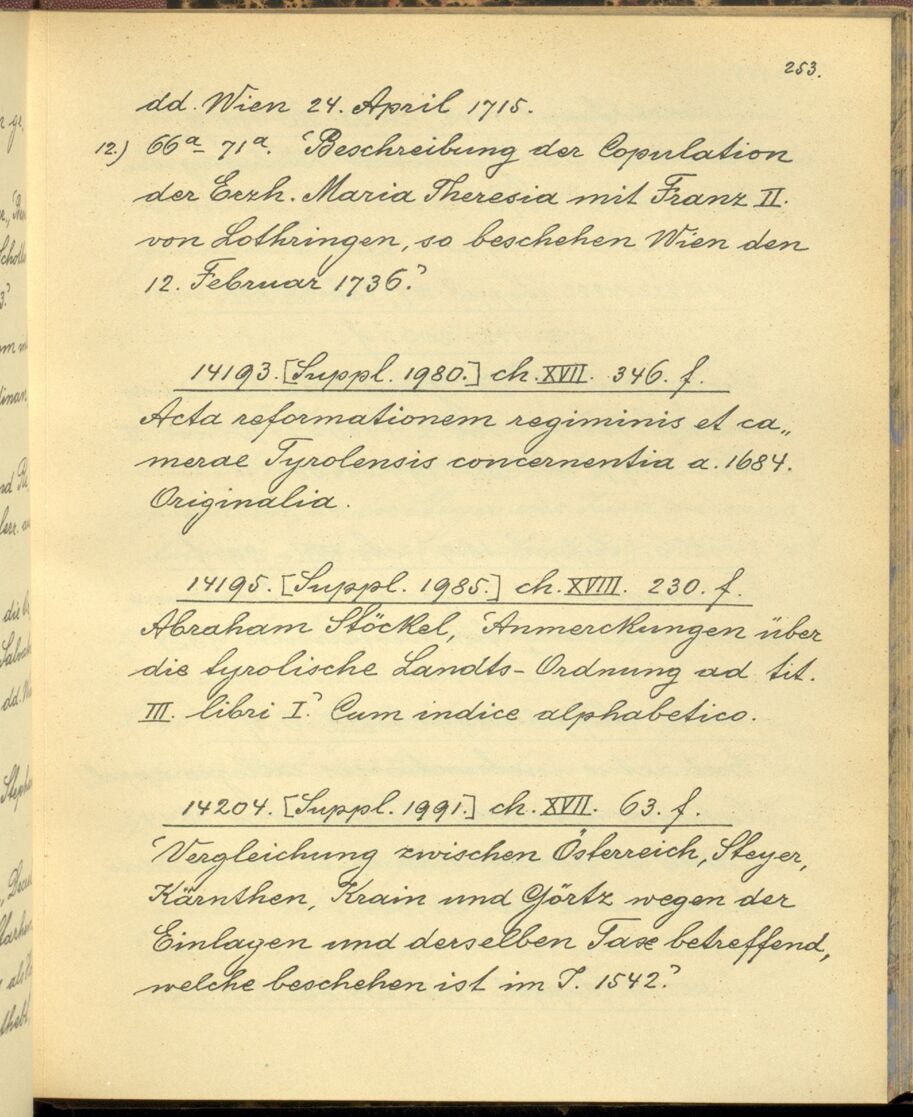 253.
dd. Wien 24. April 1715.
12.) 66ᵃ- 71ᵃ. 'Beschreibung der Copulation
der Erzh. Maria Theresia mit Franz II.
von Lothringen, so beschehen Wien den
12. Februar 1736.'
14193. [Suppl. 1980.] ch. XVII. 346. f.
Acta reformationem regiminis et ca„
merae Tyrolensis concernentia a. 1684.
Originalia.
14195. [Suppl. 1985.] ch. XVIII. 230. f.
Abraham Stöckel, 'Anmerckungen über
die tyrolische Landts-Ordnung ad tit.
III. libri I.' Cum indice alphabetico.
14204. [Suppl. 1991.] ch. XVII. 63. f.
'Vergleichung zwischen Österreich, Steyer,
Kärnthen, Krain und Görtz wegen der
Einlagen und derselben Taxe betreffend,
welche beschehen ist im J. 1542.'